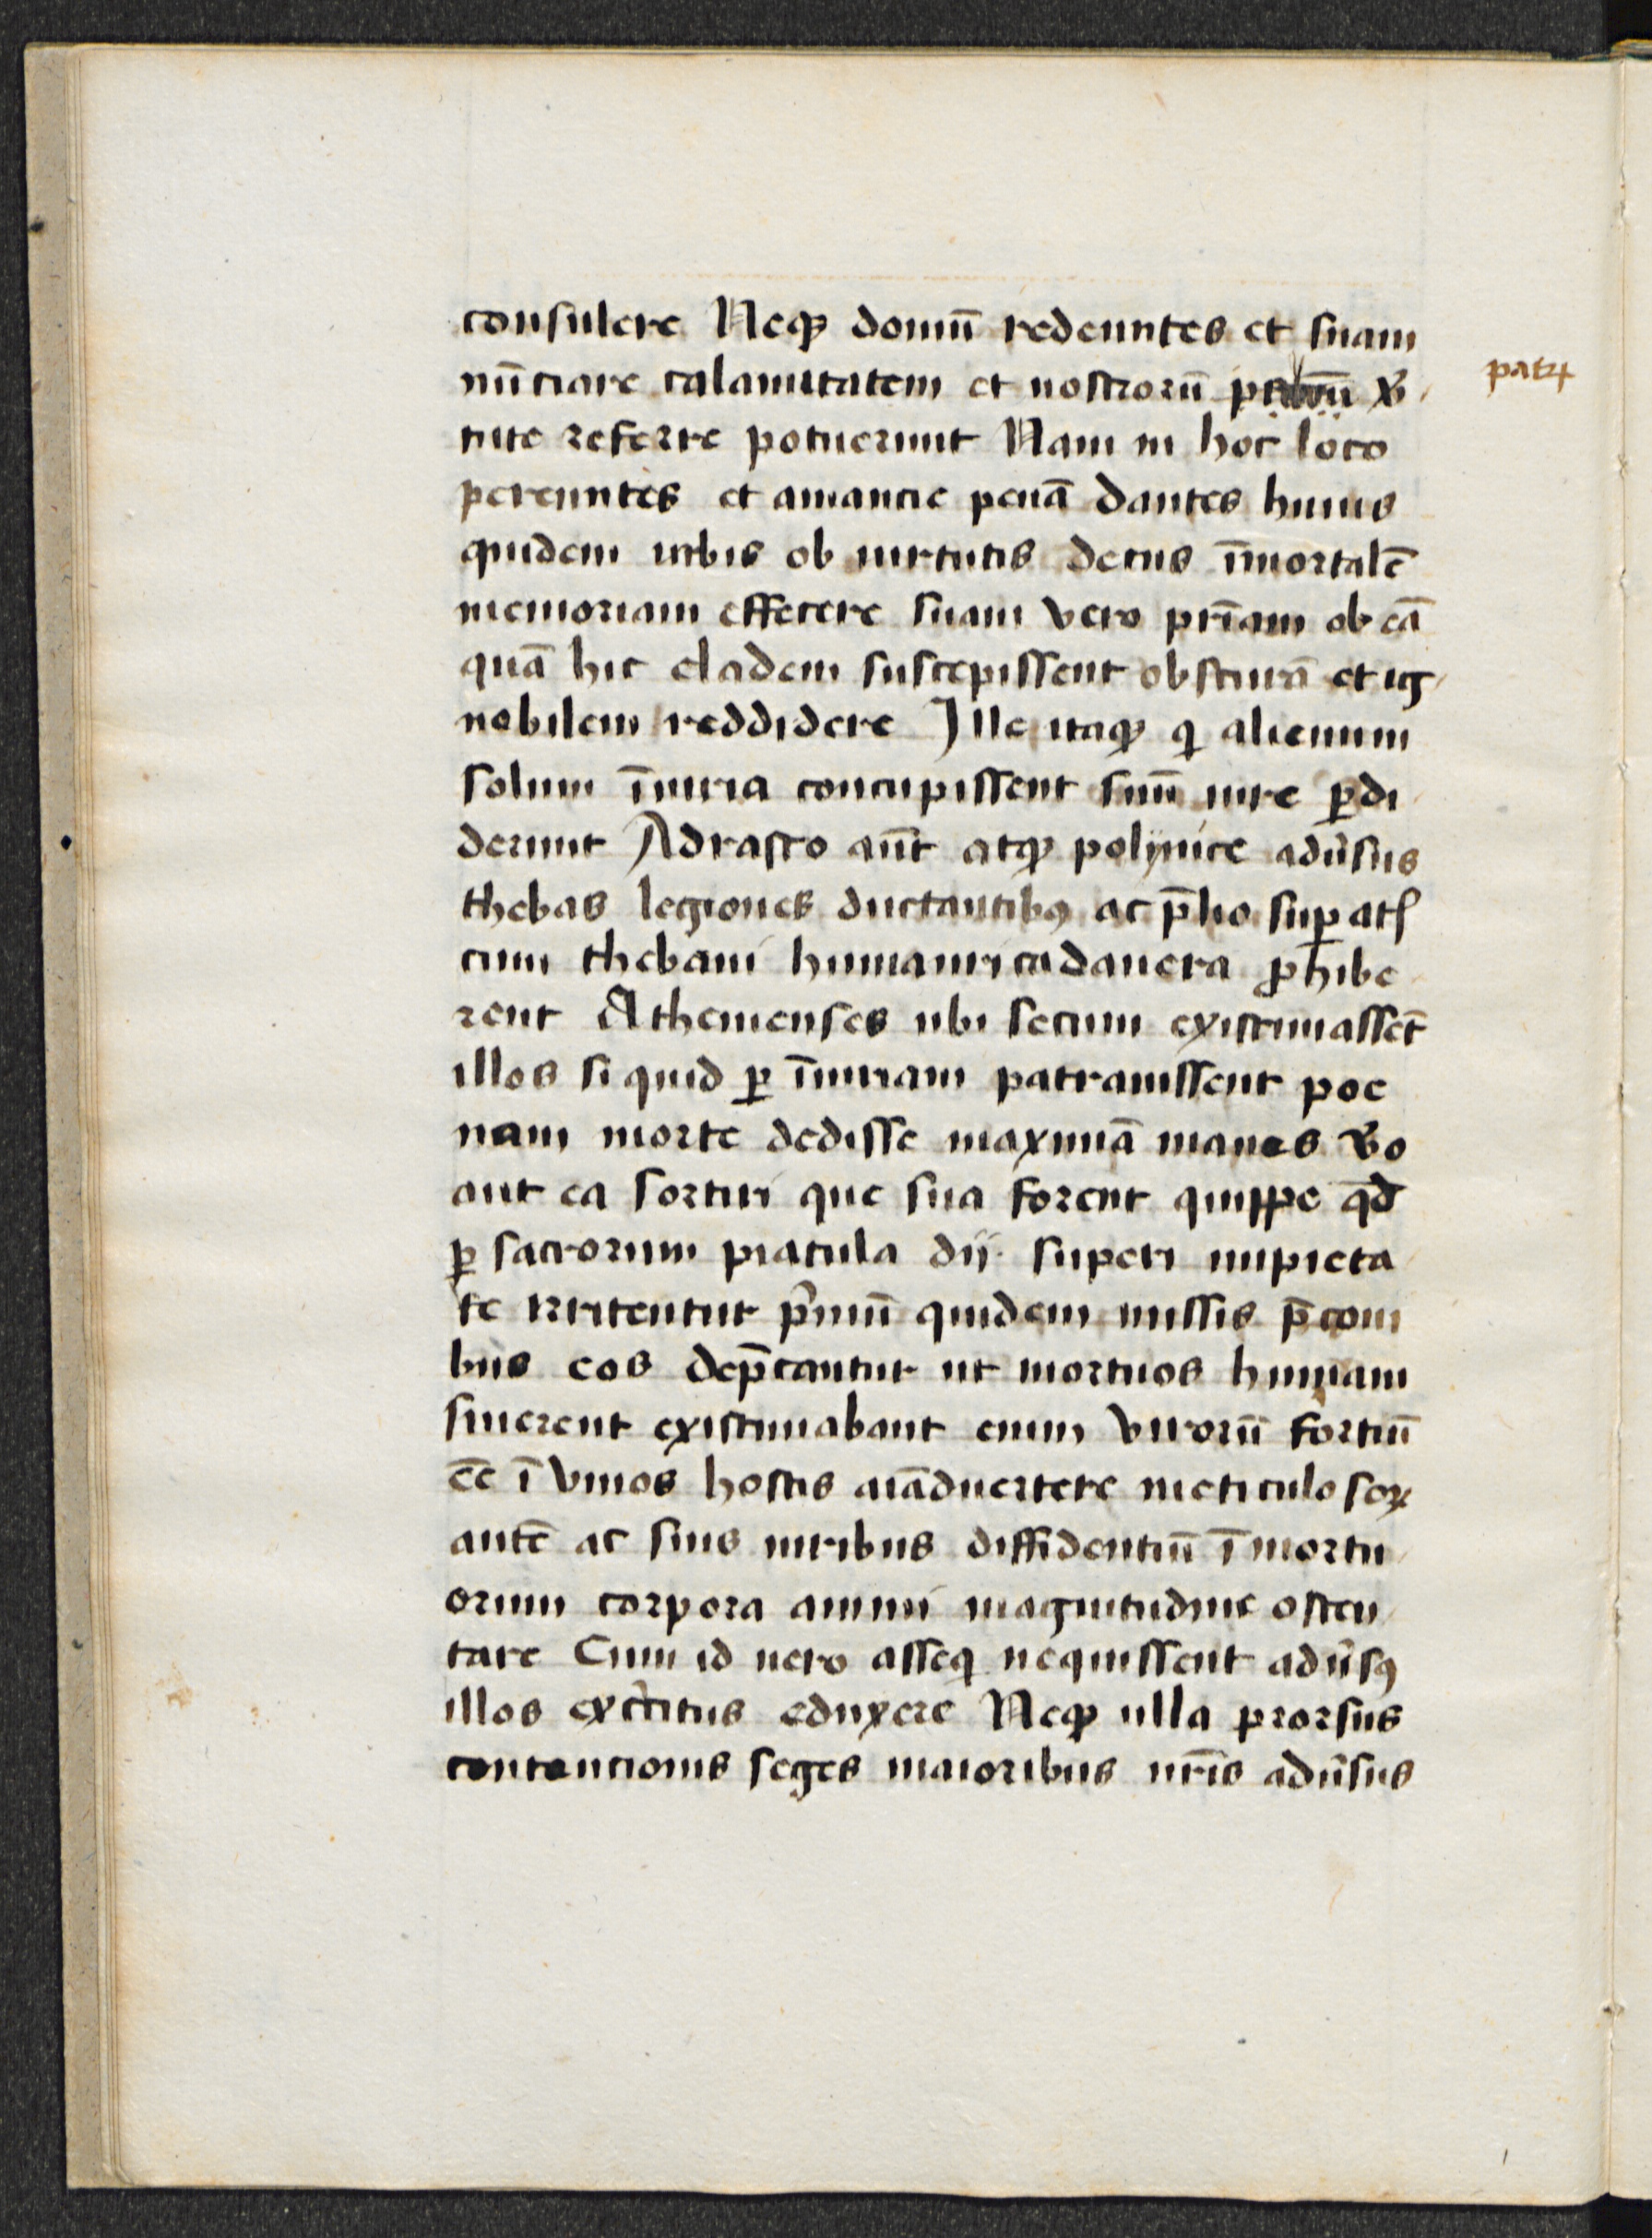 consulere Neqꝫ domū redeuntes et suam
nūciare calamitatem et nostrorū v̄
patꝝ
tute referre potuerunt Nam in hoc loco
pereuntes et amancie penā dantes huius
quidem urbis ob uirtutis decus īmortalē
memoriam effecere suam vero pr̄iam ob eā
quā hic cladem suscepissent obscurā et ig
nobilem reddidere Ille itaqꝫ q alienum
solum īiuria concupissent suū iure ꝑdi
derunt Adrasto aūt atqꝫ polynice adūsus
thebas legiones ductantibꝯ ac p̄lio suꝑatꝭ
cum thebani humanri cadauera ꝓhibe
rent Athenienses ubi secum existimassēt
illos si quid ꝑ īiuriam patrauissent poe
nam morte dedisse maximā manes v̄o
aut ea sortiri que sua forent quippe qd̄
ꝑ sacrorum piacula dij superi impieta
te irritentur p̄mū quidem missis p̄coni
bus eos dep̄cantur ut mortuos humari
sinerent existimabant enim virorū fortiū
eē ī viuos hostis aiāduertere meticulosoꝝ
autē ac suis uiribus diffidentiū ī mortu
orum corpora animi magnitudine osten
tare Cum id uero asseq nequissent adūsꝯ
illos ex̄citus eduxere Neqꝫ ulla prorsus
contencionis seges maioribus nr̄is adūsus